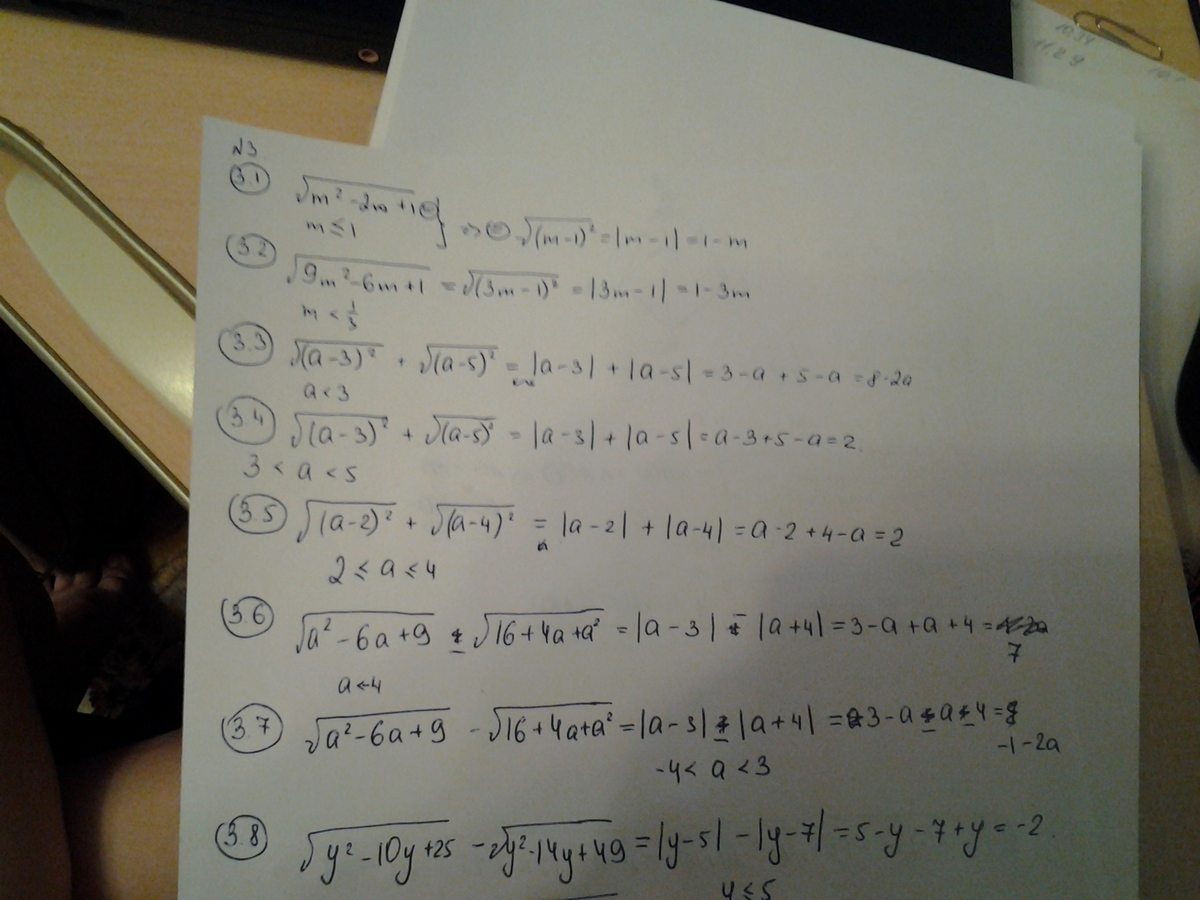 №3
3.1 √(m² - 2m + 1) ⊜ } => ⊜ √(m-1)² = |m-1| = 1-m
m ≤ 1
3.2 √(9m² - 6m + 1) = √(3m-1)² = |3m-1| = 1-3m
m < 1/3
3.3 √(a-3)² + √(a-5)² = |a-3| + |a-5| = 3-a + 5-a = 8-2a
a < 3
3.4 √(a-3)² + √(a-5)² = |a-3| + |a-5| = a-3+5-a = 2.
3 < a < 5
3.5 √(a-2)² + √(a-4)² = |a-2| + |a-4| = a-2+4-a = 2
2 ≤ a ≤ 4
3.6 √(a² - 6a + 9) - √(16+4a+a²) = |a-3| - |a+4| = 3-a+a+4 =
7
a<-4
3.7 √(a² - 6a + 9) - √(16+4a+a²) = |a-3| - |a+4| = 3-a-a-4 =
-1-2a
-4 < a < 3
3.8 √(y² - 10y + 25) - √(y² - 14y + 49) = |y-5| - |y-7| = 5-y-7+y = -2.
y ≤ 5